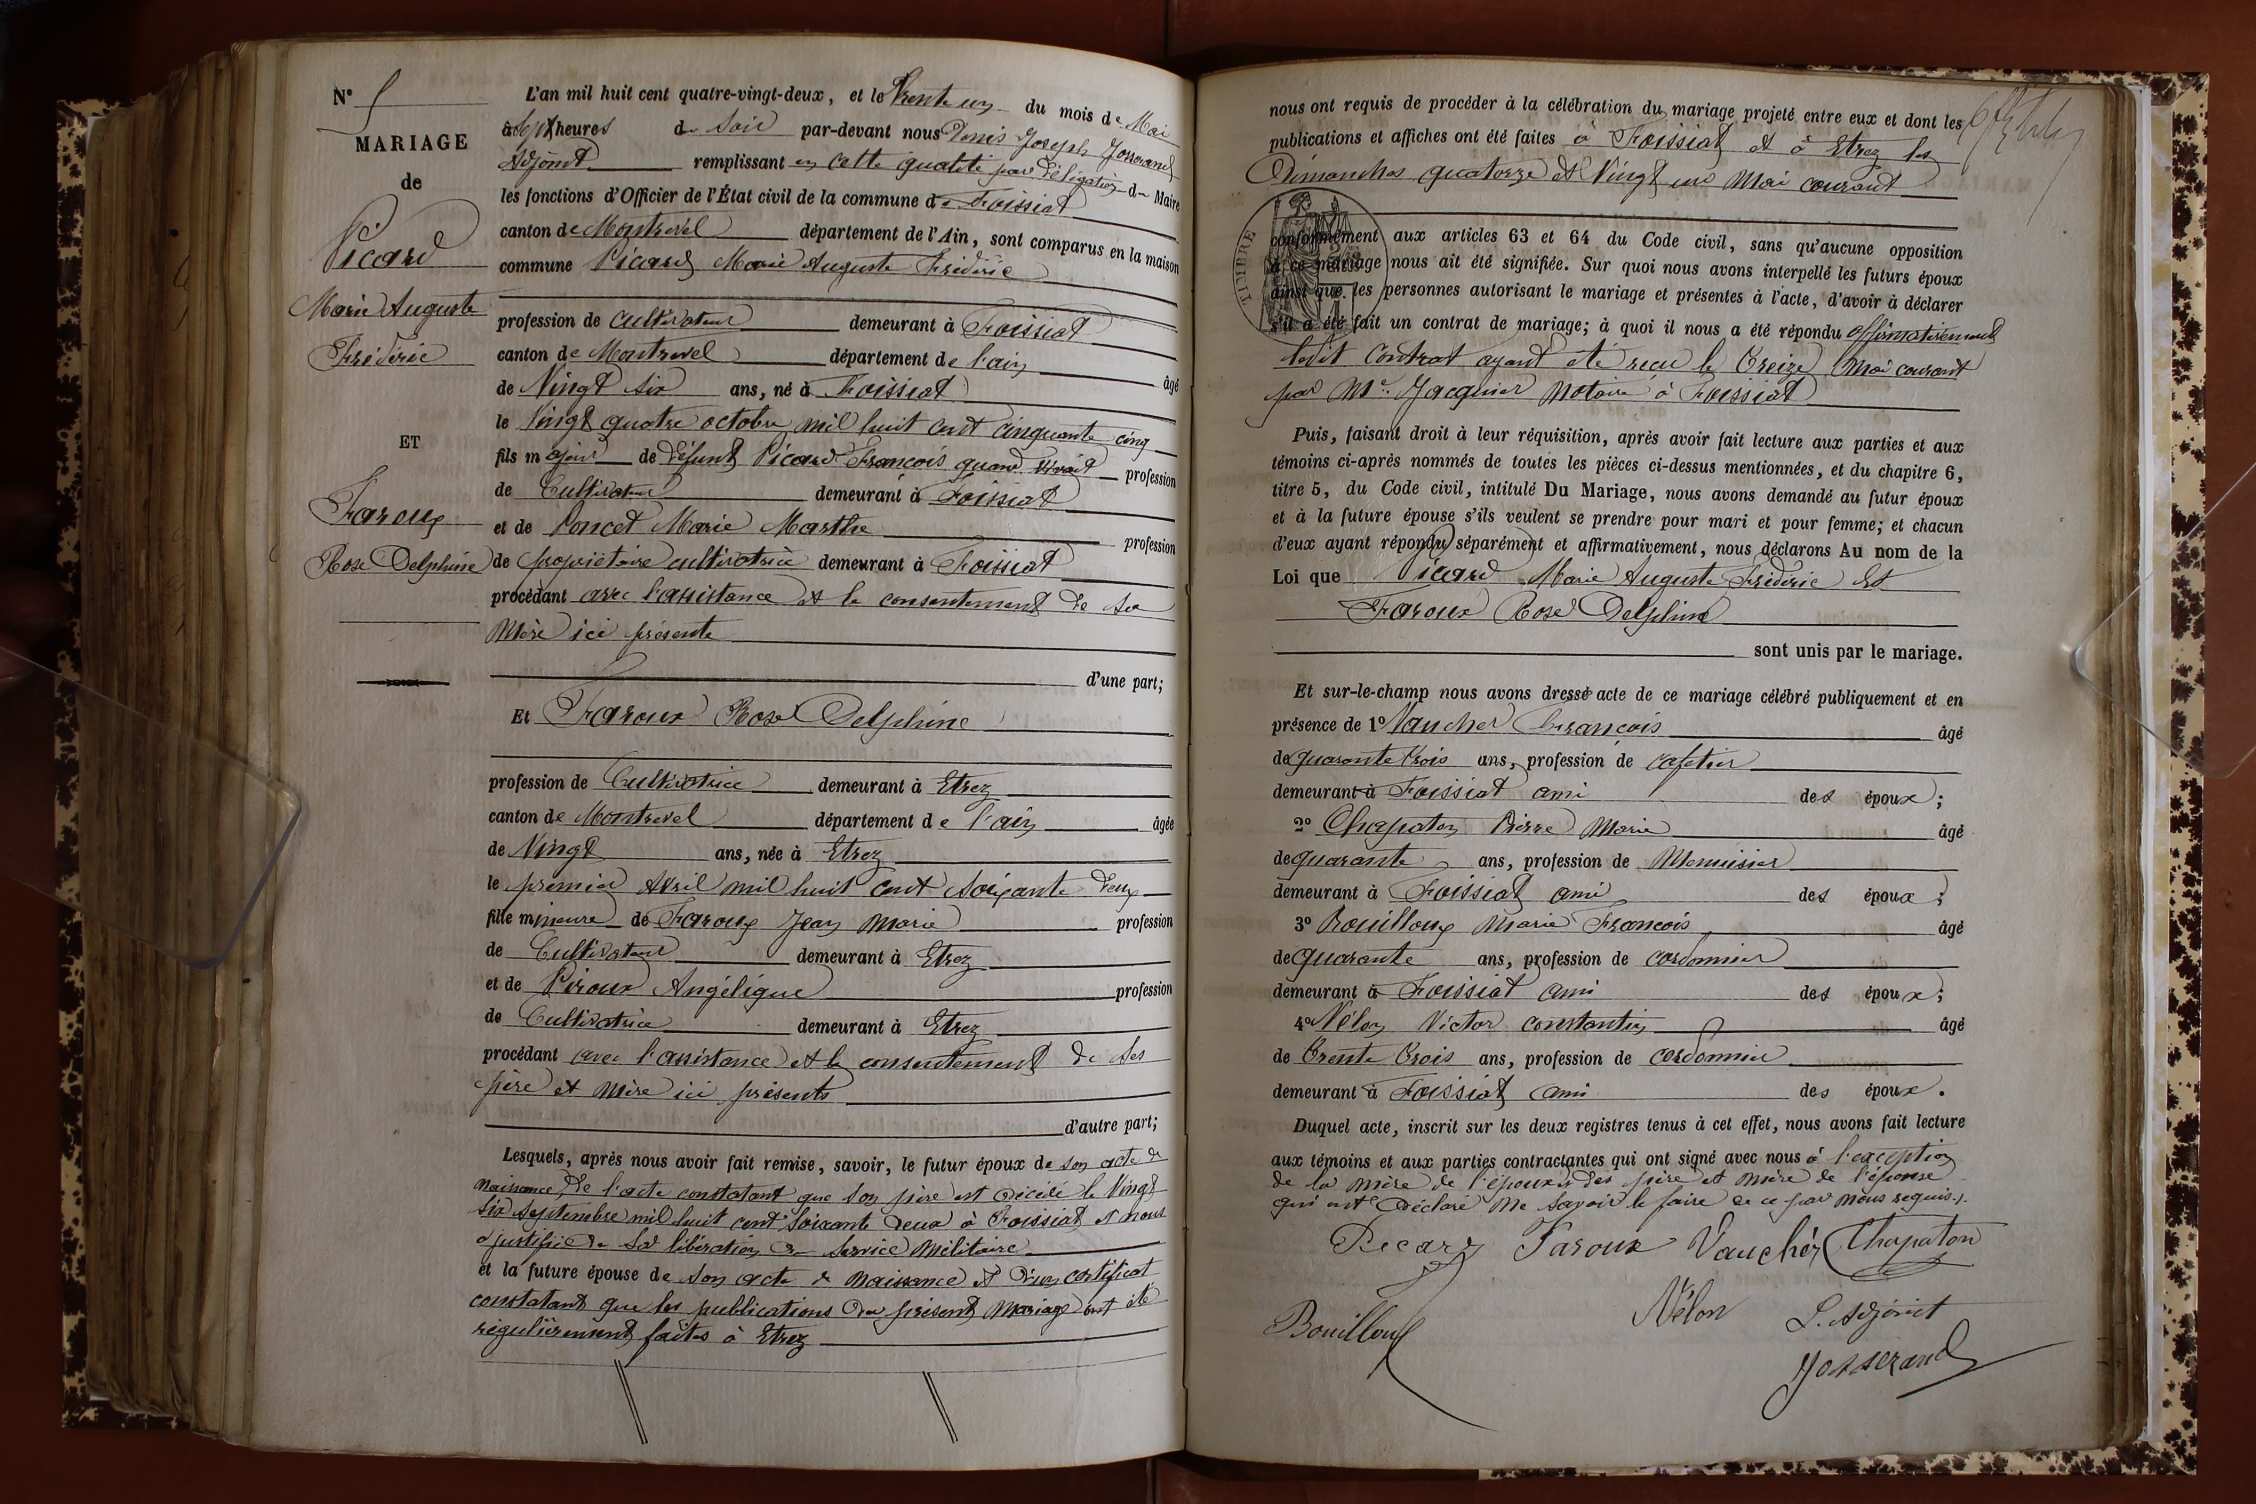 N° 5
MARIAGE
de
Picard
Marie Auguste
Frédéric
ET
Faroux
Rose Delphine
L'an mil huit cent quatre-vingt-deux, et le Trente un du mois de Mai
à Sept heures du Soir par-devant nous Denis Joseph Josserand
Adjoint remplissant en cette qualité par délégation du Maire
les fonctions d'Officier de l'État civil de la commune de Foissiat
canton de Montrevel département de l'Ain, sont comparus en la maison
commune Picard Marie Auguste Frédéric
profession de cultivateur demeurant à Foissiat
canton de Montrevel département de l'ain âgé
de Vingt six ans, né à Foissiat
le Vingt quatre octobre mil huit cent cinquante cinq
fils majeur de défunt Picard François quand vivait profession
de Cultivateur demeurant à Foissiat
et de Poncet Marie Marthe profession
de propriétaire cultivatrice demeurant à Foissiat
procédant avec l'assistance et le consentement de sa
Mère ici présente
d'une part;
Et Faroux Rose Delphine
profession de Cultivatrice demeurant à Etrez
canton de Montrevel département de l'ain âgée
de Vingt ans, née à Etrez
le premier Avril mil huit cent soixante deux
fille mineure de Faroux Jean Marie profession
de Cultivateur demeurant à Etrez
et de Piroux Angélique profession
de Cultivatrice demeurant à Etrez
procédant avec l'assistance et le consentement de ses
père et mère ici présents
d'autre part;
Lesquels, après nous avoir fait remise, savoir, le futur époux de son acte de
naissance, de l'acte constatant que son père est décédé le Vingt
six septembre mil huit cent soixante deux à Foissiat et nous
a justifié de sa libération du service militaire
et la future épouse de son acte de naissance et d'un certificat
constatant que les publications du présent mariage ont été
régulièrement faites à Etrez
nous ont requis de procéder à la célébration du mariage projeté entre eux et dont les
publications et affiches ont été faites à Foissiat et à Etrez les
Dimanches quatorze et Vingt un Mai courant
TIMBRE
conformément aux articles 63 et 64 du Code civil, sans qu'aucune opposition
à ce mariage nous ait été signifiée. Sur quoi nous avons interpellé les futurs époux
ainsi que les personnes autorisant le mariage et présentes à l'acte, d'avoir à déclarer
s'il a été fait un contrat de mariage; à quoi il nous a été répondu affirmativement
ledit contrat ayant été reçu le Treize Mai courant
par Me Jacquier Notaire à Foissiat
Puis, faisant droit à leur réquisition, après avoir fait lecture aux parties et aux
témoins ci-après nommés de toutes les pièces ci-dessus mentionnées, et du chapitre 6,
titre 5, du Code civil, intitulé Du Mariage, nous avons demandé au futur époux
et à la future épouse s'ils veulent se prendre pour mari et pour femme; et chacun
d'eux ayant répondu séparément et affirmativement, nous déclarons Au nom de la
Loi que Picard Marie Auguste Frédéric Et
Faroux Rose Delphine
sont unis par le mariage.
Et sur-le-champ nous avons dressé acte de ce mariage célébré publiquement et en
présence de 1° Vaucher François âgé
de quarante trois ans, profession de cafetier
demeurant à Foissiat ami des époux;
2° Chapaton Pierre Marie âgé
de quarante ans, profession de Menuisier
demeurant à Foissiat ami des époux;
3° Bouilloux Marie François âgé
de quarante ans, profession de cordonnier
demeurant à Foissiat ami des époux;
4° Nélon Victor constantin âgé
de trente trois ans, profession de cordonnier
demeurant à Foissiat ami des époux.
Duquel acte, inscrit sur les deux registres tenus à cet effet, nous avons fait lecture
aux témoins et aux parties contractantes qui ont signé avec nous à l'exception
de la mère de l'époux des père et mère de l'épouse
qui ont déclaré ne savoir le faire de ce par nous requis.
Picard Faroux Vaucher Chapaton
Bouilloux Nélon L'Adjoint
Josserand